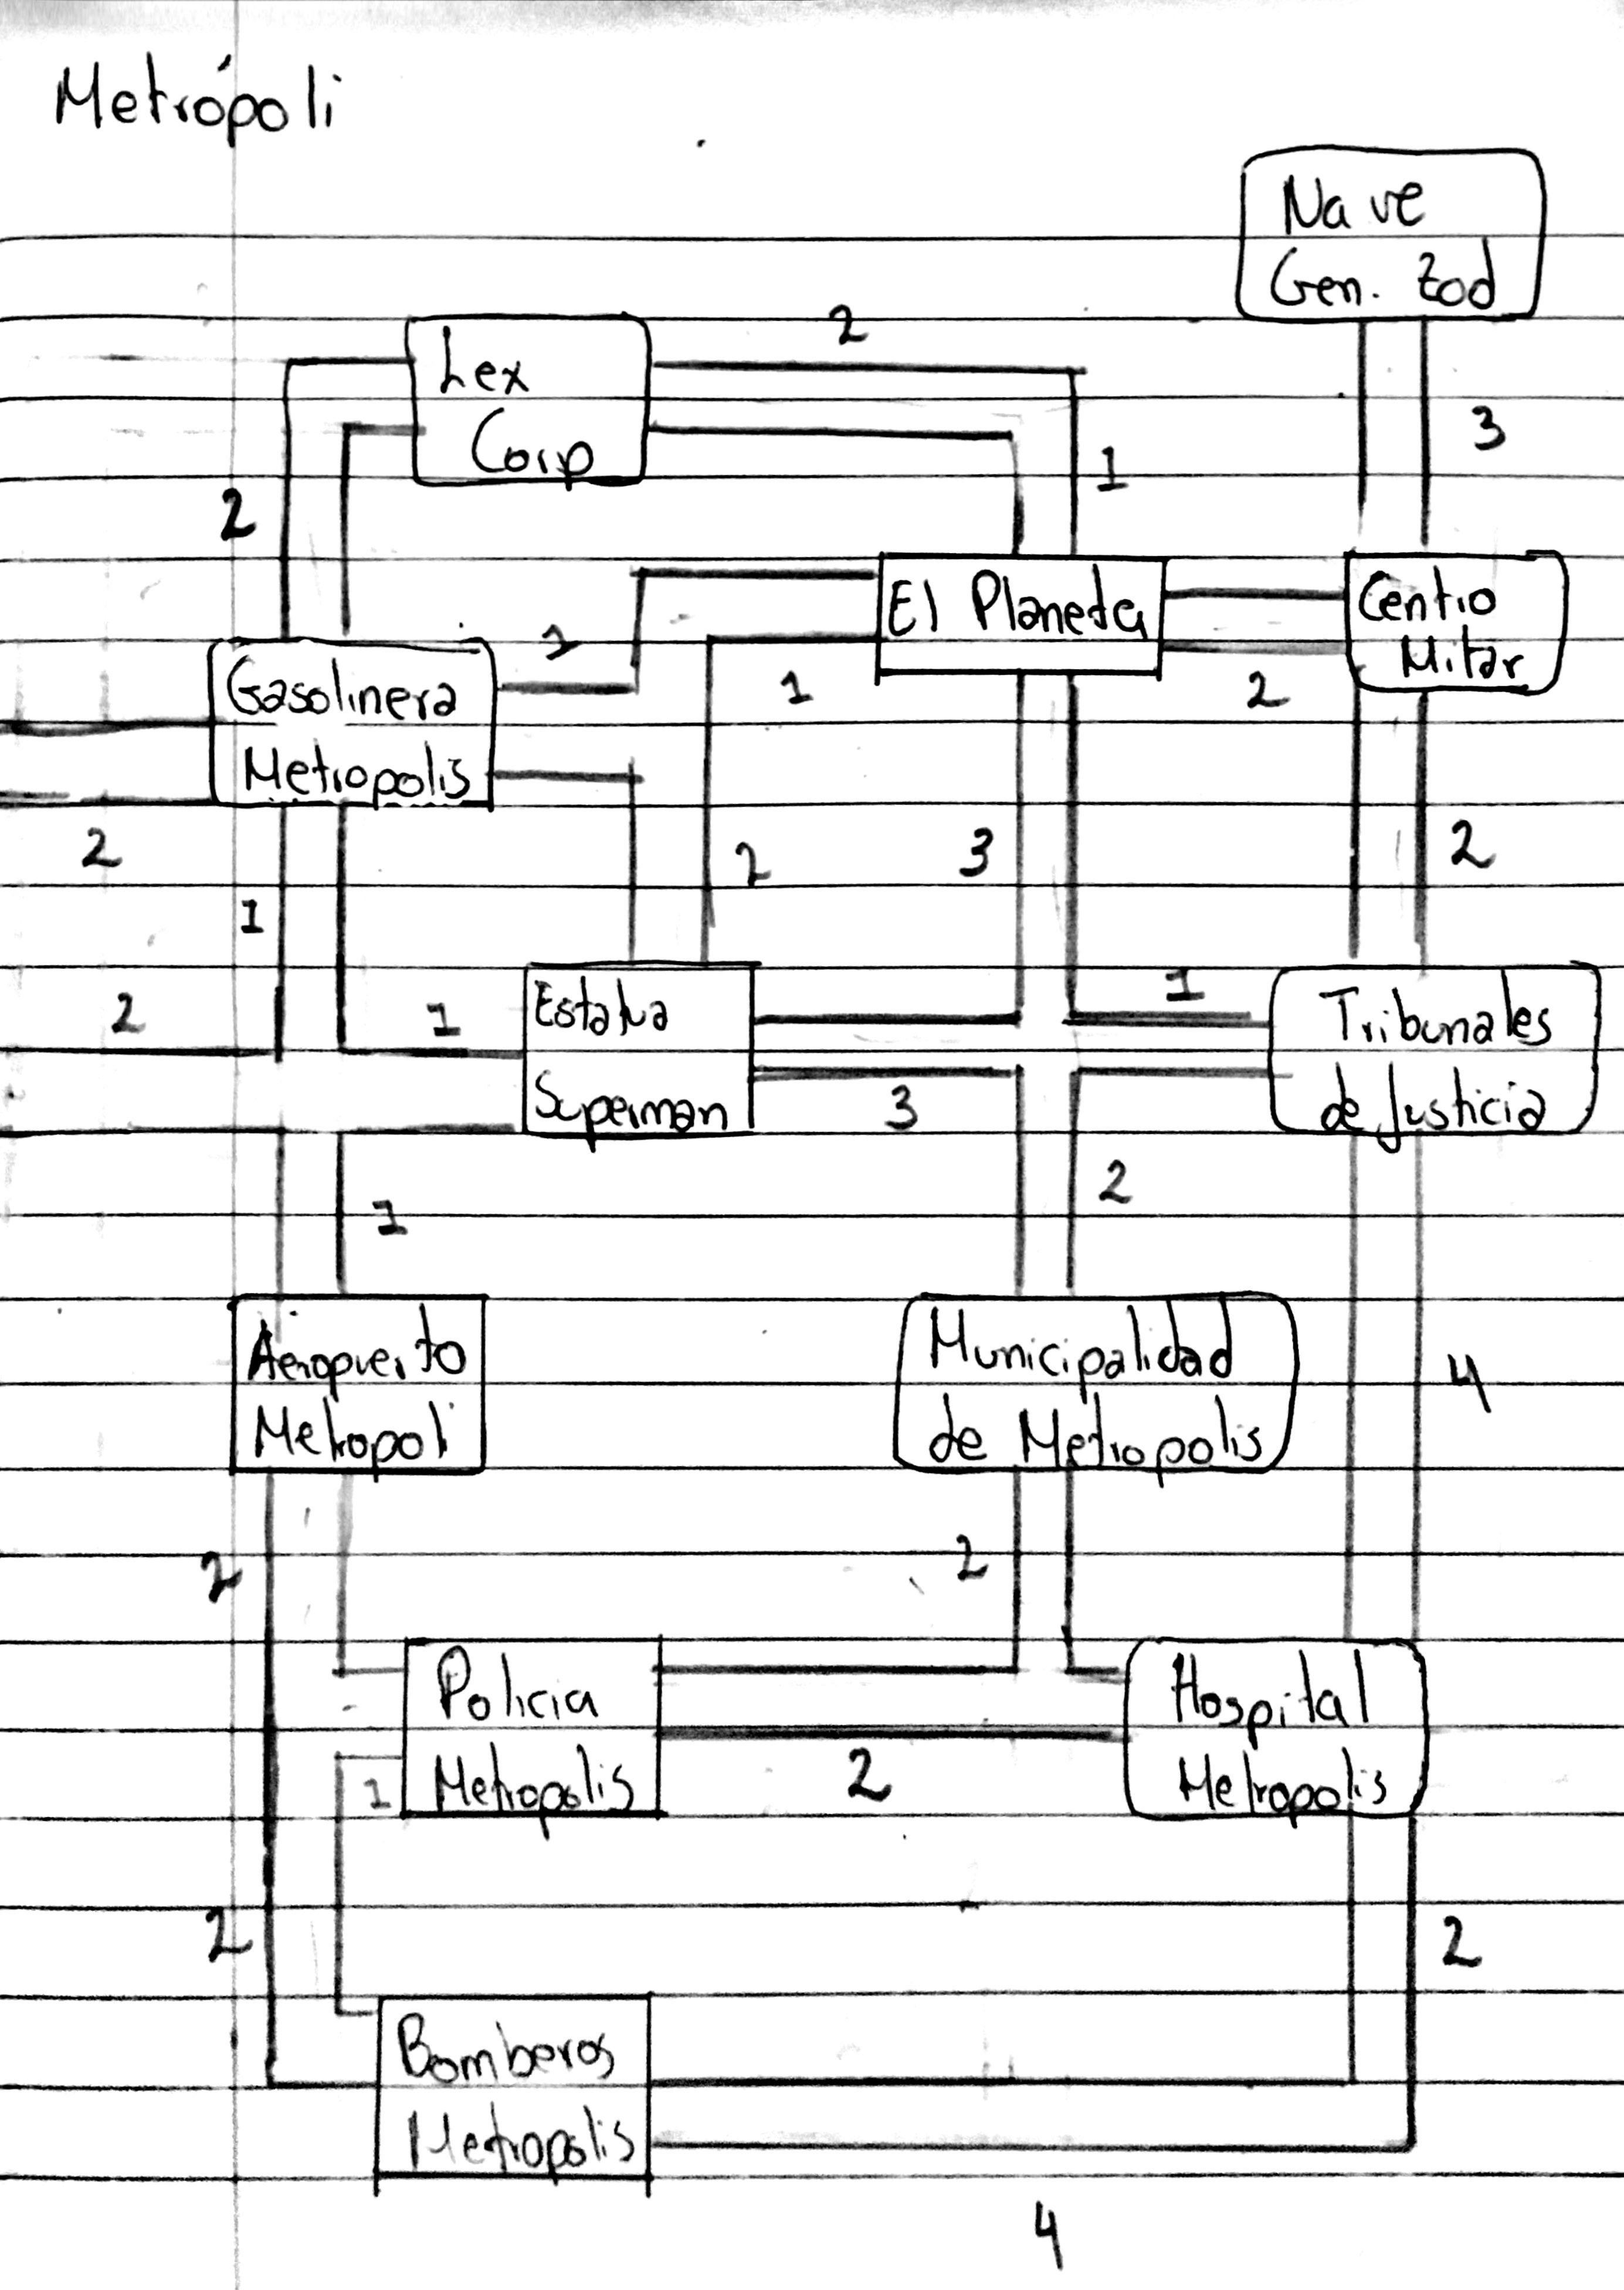 Metrópoli
Nave
Gen. Zod
2
Lex
Corp
3
1
2
El Planeta
Centro
Mitar
1
Gasolinera
Metropolis
1
2
2
2
3
2
1
2
1
Estatua
Superman
1
Tribunales
de Justicia
3
2
1
Aeropuerto
Metropoli
Municipalidad
de Metropolis
4
2
2
Policia
Metropolis
Hospital
Metropolis
1
2
2
2
Bomberos
Metropolis
4